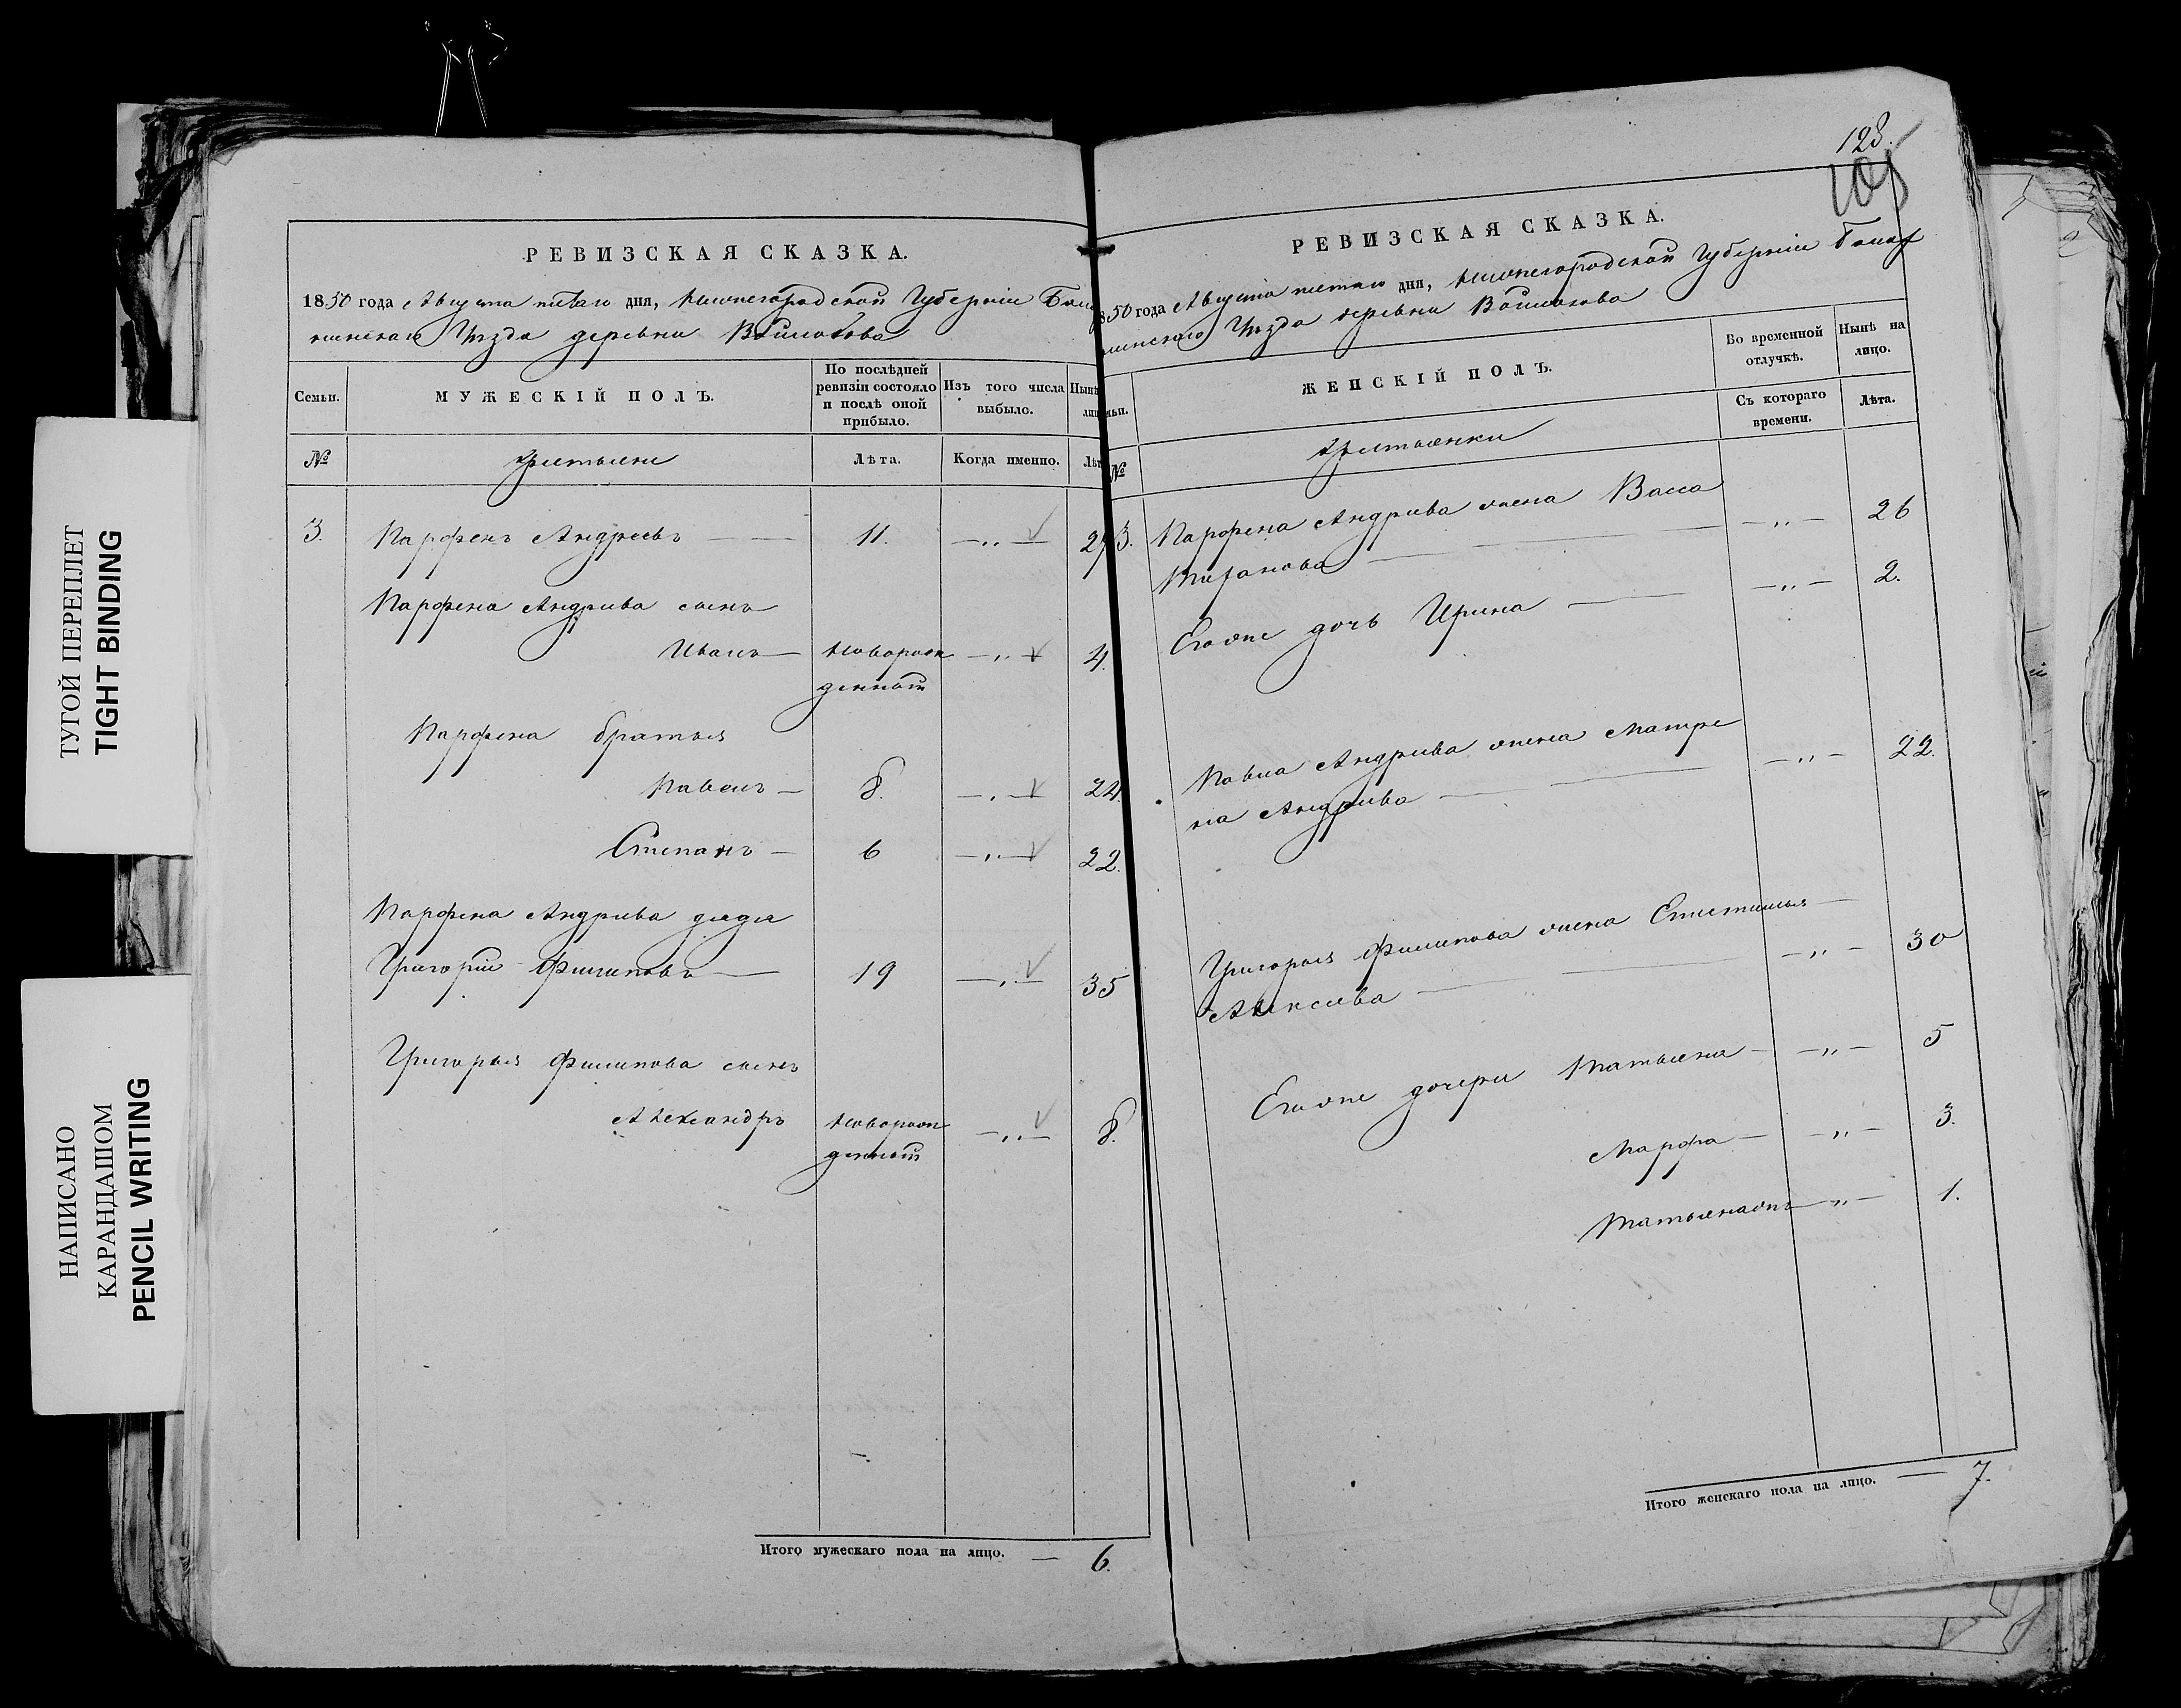 ТУГОЙ ПЕРЕПЛЕТ
TIGHT BINDING
НАПИСАНО
КАРАНДАШОМ
PENCIL WRITING
РЕВИЗСКАЯ СКАЗКА.
1850 года Августа пятаго дня, Нижегородской Губерніи Бал
нинскаго Уѣзда деревни Войлокова
Семьи.
МУЖЕСКІЙ ПОЛЪ.
По послѣдней
ревизіи состояло
и послѣ оной
прибыло.
Изъ того числа
выбыло.
Нынѣ
№
Крестьяне
Лѣта.
Когда именно.
Лѣт
3.
Парфенъ Андреевъ
11.
27
Парфена Андреева сынъ
Иванъ
новорож
денной
4.
Парфена братья
Павелъ
8.
24.
Степанъ
6
22.
Парфена Андреева дядя
Григорій Филиповъ
19
35
Григорья Филипова сынъ
Александръ
новорож
денной
8.
Итого мужескаго пола на лицо.
6.
128.
105
РЕВИЗСКАЯ СКАЗКА.
850 года Августа пятаго дня, Нижегородской Губерніи Балах
нинскаго Уѣзда деревни Войлокова
ЖЕНСКІЙ ПОЛЪ.
Во временной
отлучкѣ.
Нынѣ на
лицо.
Съ котораго
времени.
Лѣта.
№
Крестьянки
3.
Парфена Андреева жена Васса
26
Егоже дочь Ирина
2.
Павла Андреева жена Матре
на Андреева
22.
Григорья Филипова жена Епистимья
Алексеева
30
Егоже дочери Татьяна
5
Марфа
3.
Татьянажъ
1.
Итого женскаго пола на лицо.
7.